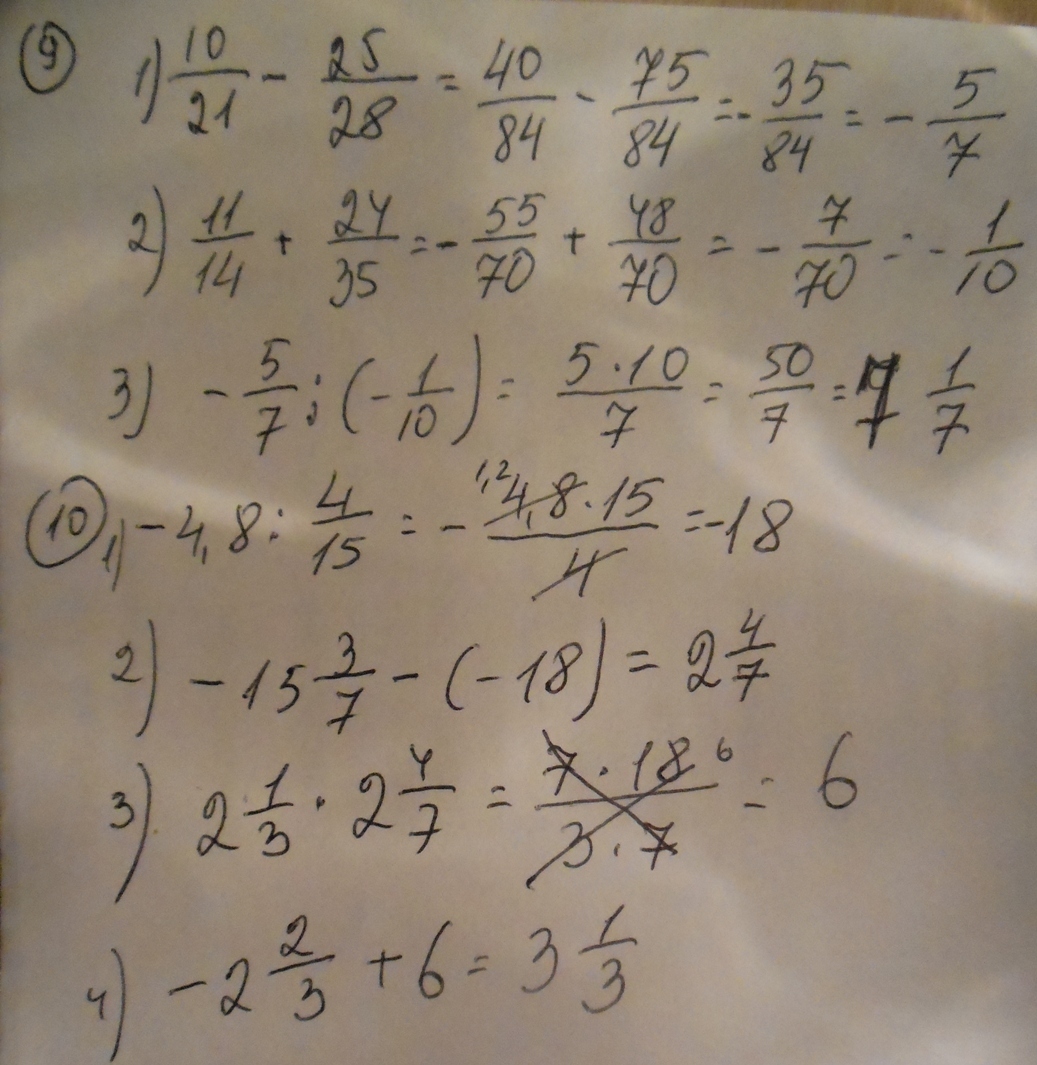 9 1) 10/21 - 25/28 = 40/84 - 75/84 = - 35/84 = - 5/7
2) 11/14 + 24/35 = - 55/70 + 48/70 = - 7/70 = - 1/10
3) - 5/7 : (- 1/10) = 5·10/7 = 50/7 = 7 1/7
10 1) - 4,8 : 4/15 = - 1,2 4,8·15/4 = -18
2) - 15 3/7 - (-18) = 2 4/7
3) 2 1/3 · 2 4/7 = 7·18 6/3·7 = 6
4) - 2 2/3 + 6 = 3 1/3